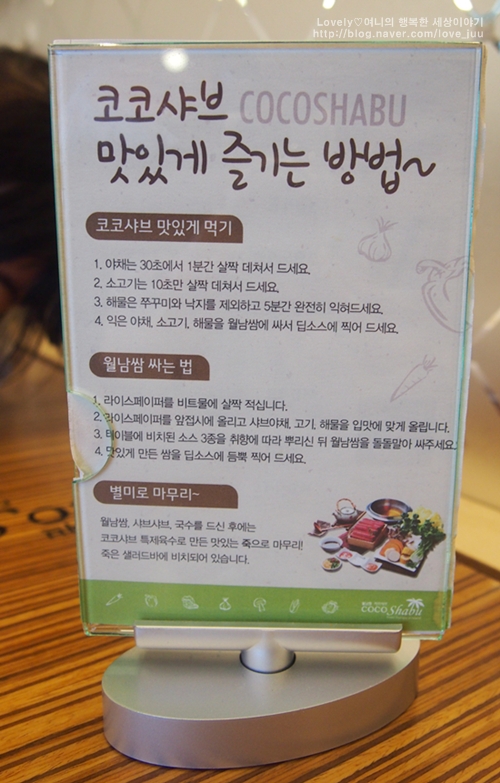 Lovely♡여니의 행복한 세상이야기
http://blog.naver.com/love_juu
코코샤브 COCOSHABU
맛있게 즐기는 방법~
코코샤브 맛있게 먹기
1. 야채는 30초에서 1분간 살짝 데쳐서 드세요.
2. 소고기는 10초만 살짝 데쳐서 드세요.
3. 해물은 쭈꾸미와 낙지를 제외하고 5분간 완전히 익혀드세요.
4. 익은 야채, 소고기, 해물을 월남쌈에 싸서 딥소스에 찍어 드세요.
월남쌈 싸는 법
1. 라이스페이퍼를 비트물에 살짝 적십니다.
2. 라이스페이퍼를 앞접시에 올리고 샤브야채, 고기, 해물을 입맛에 맞게 올립니다.
3. 테이블에 비치된 소스 3종을 취향에 따라 뿌리신 뒤 월남쌈을 돌돌말아 싸주세요.
4. 맛있게 만든 쌈을 딥소스에 듬뿍 찍어 드세요.
별미로 마무리~
월남쌈, 샤브샤브, 국수를 드신 후에는
코코샤브 특제육수로 만든 맛있는 죽으로 마무리!
죽은 샐러드바에 비치되어 있습니다.
COCO Shabu